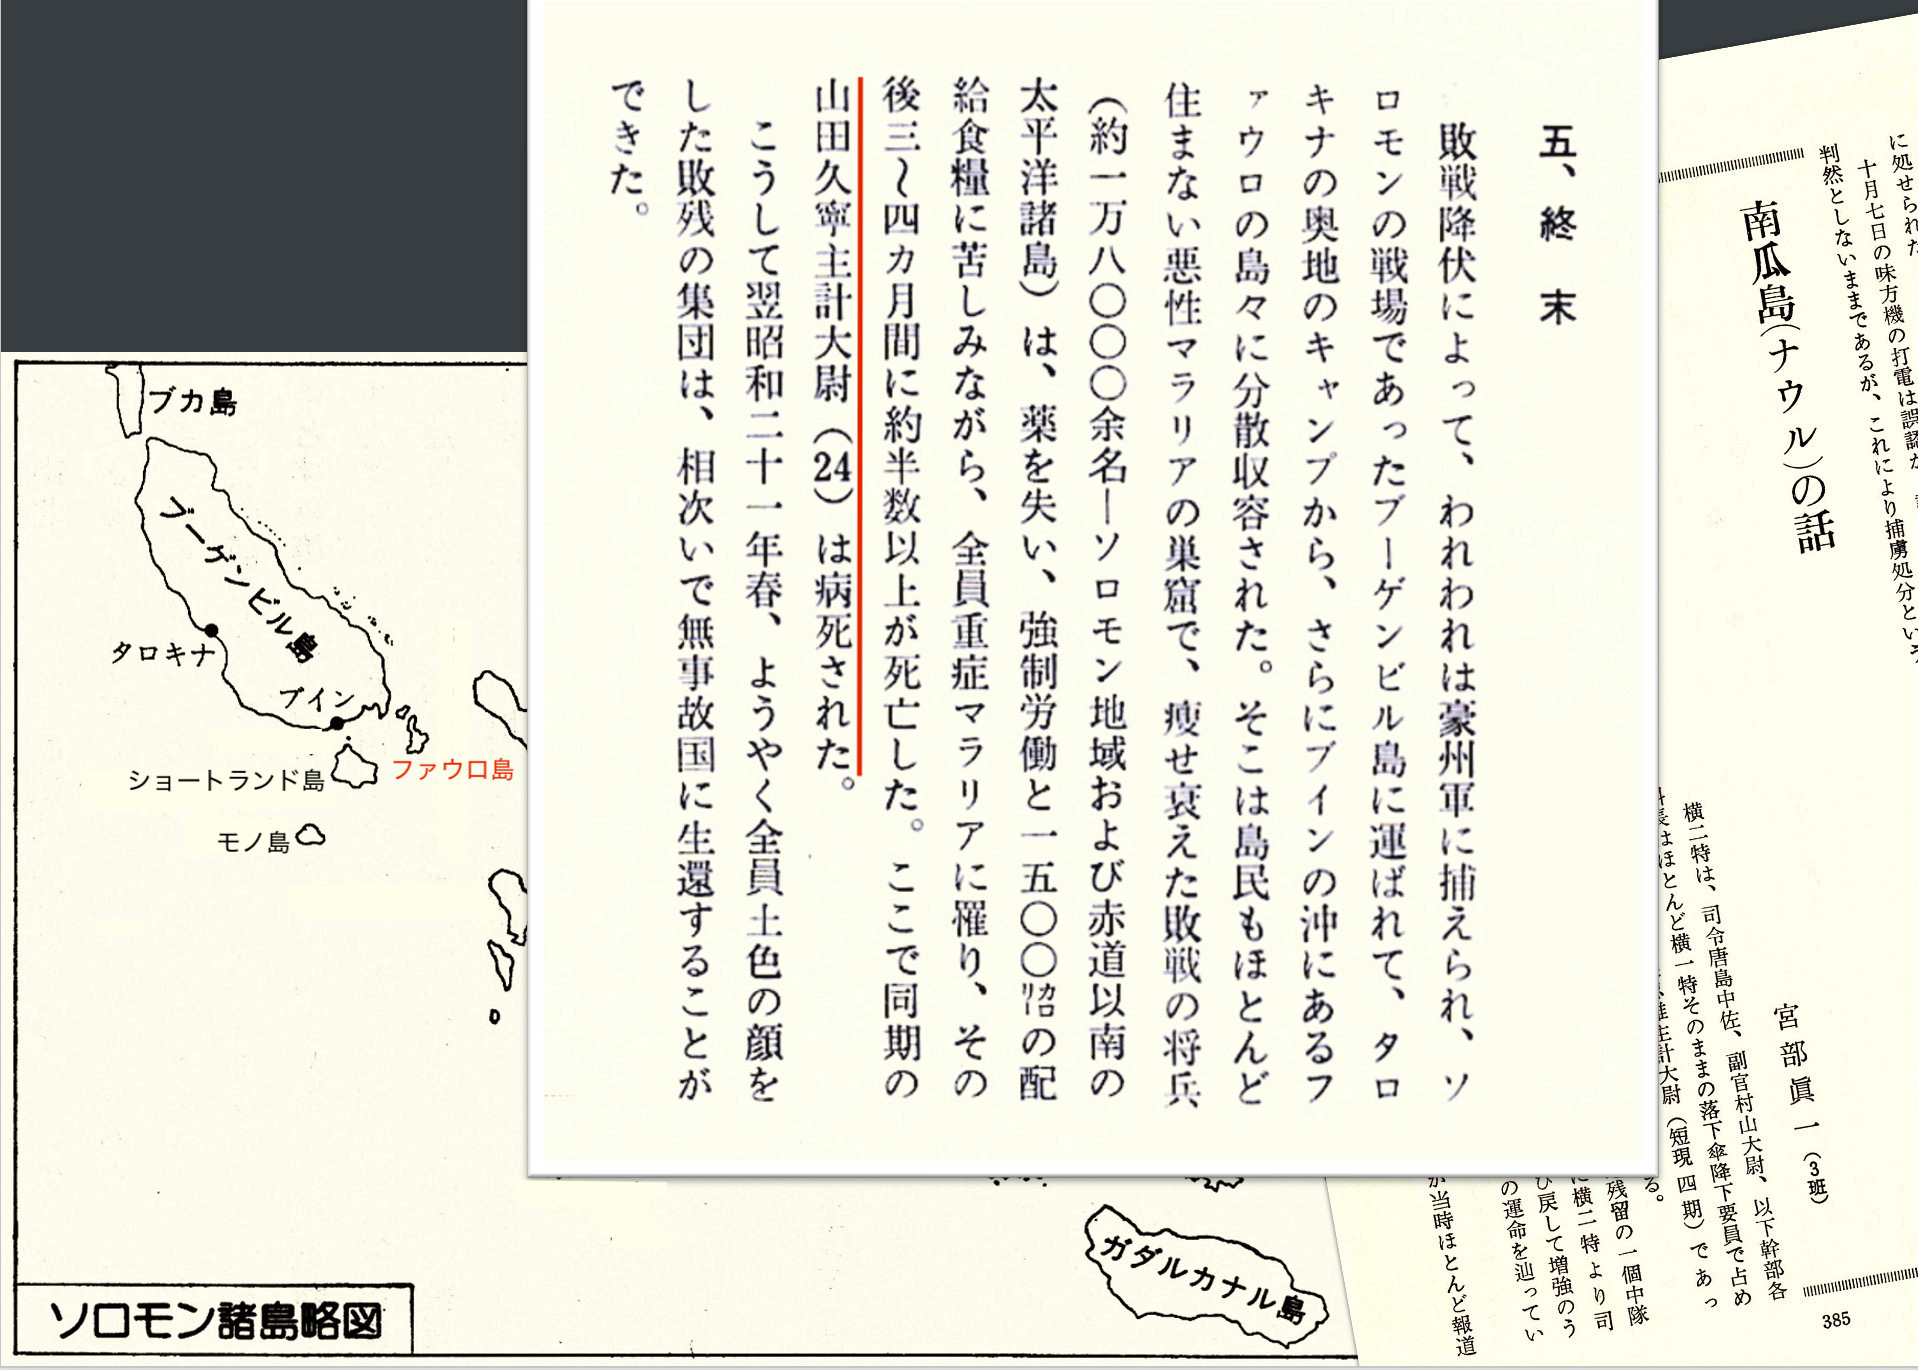 五、終末
敗戦降伏によって、われわれは豪州軍に捕えられ、ソ
ロモンの戦場であったブーゲンビル島に運ばれて、タロ
キナの奥地のキャンプから、さらにブインの沖にあるフ
ァウロの島々に分散収容された。そこは島民もほとんど
住まない悪性マラリアの巣窟で、痩せ衰えた敗戦の将兵
（約一万八〇〇〇余名―ソロモン地域および赤道以南の
太平洋諸島）は、薬を失い、強制労働と一五〇〇カロリーの配
給食糧に苦しみながら、全員重症マラリアに罹り、その
後三〜四カ月間に約半数以上が死亡した。ここで同期の
山田久寧主計大尉（24）は病死された。
こうして翌昭和二十一年春、ようやく全員土色の顔を
した敗残の集団は、相次いで無事故国に生還することが
できた。
に処せられた
十月七日の味方機の打電は誤認か
判然としないままであるが、これにより捕虜処分という
南瓜島（ナウル）の話
宮部眞一（3班）
横二特は、司令唐島中佐、副官村山大尉、以下幹部各
科長はほとんど横一特そのままの落下傘降下要員で占め
主計大尉（短現四期）であっ
る。
残留の一個中隊
に横二特より司
び戻して増強のう
の運命を辿ってい
が当時ほとんど報道
385
ブカ島
ブーゲンビル島
タロキナ
ブイン
ショートランド島
ファウロ島
モノ島
ガダルカナル島
ソロモン諸島略図